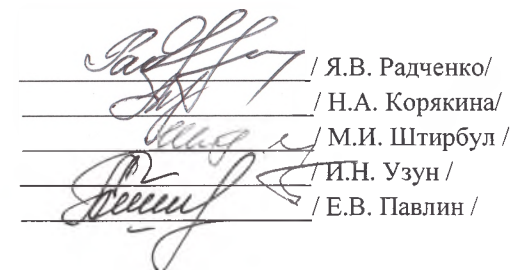 / Я.В. Радченко/
/ Н.А. Корякина/
/ М.И. Штирбул /
/ И.Н. Узун /
/ Е.В. Павлин /